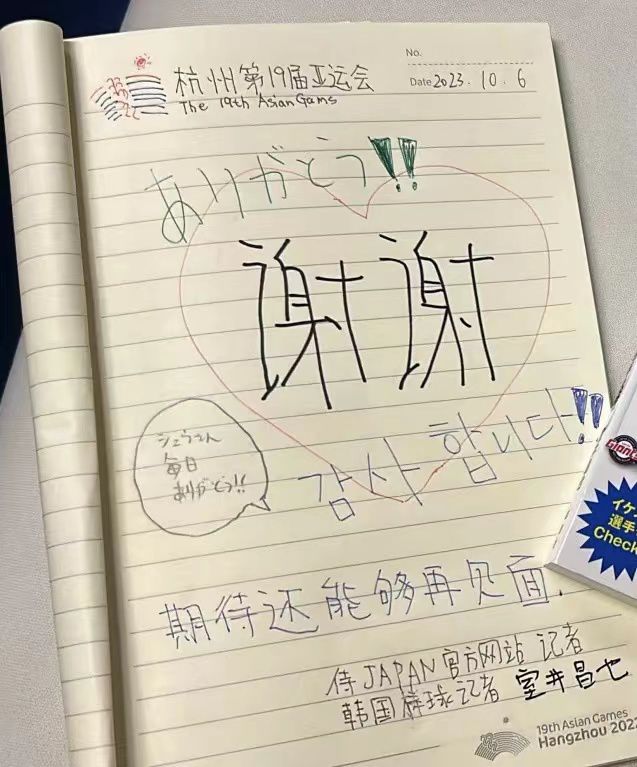 杭州第19届亚运会
The 19th Asian Gams
No.
Date 2023. 10. 6
ありがとう!!
谢谢
シュウさん
毎日
ありがとう!!
감사합니다!!
期待还能够再见面.
侍JAPAN官方网站 记者
韩国棒球记者 室井昌也
19th Asian Games
Hangzhou 2022
イケ
選手
Check